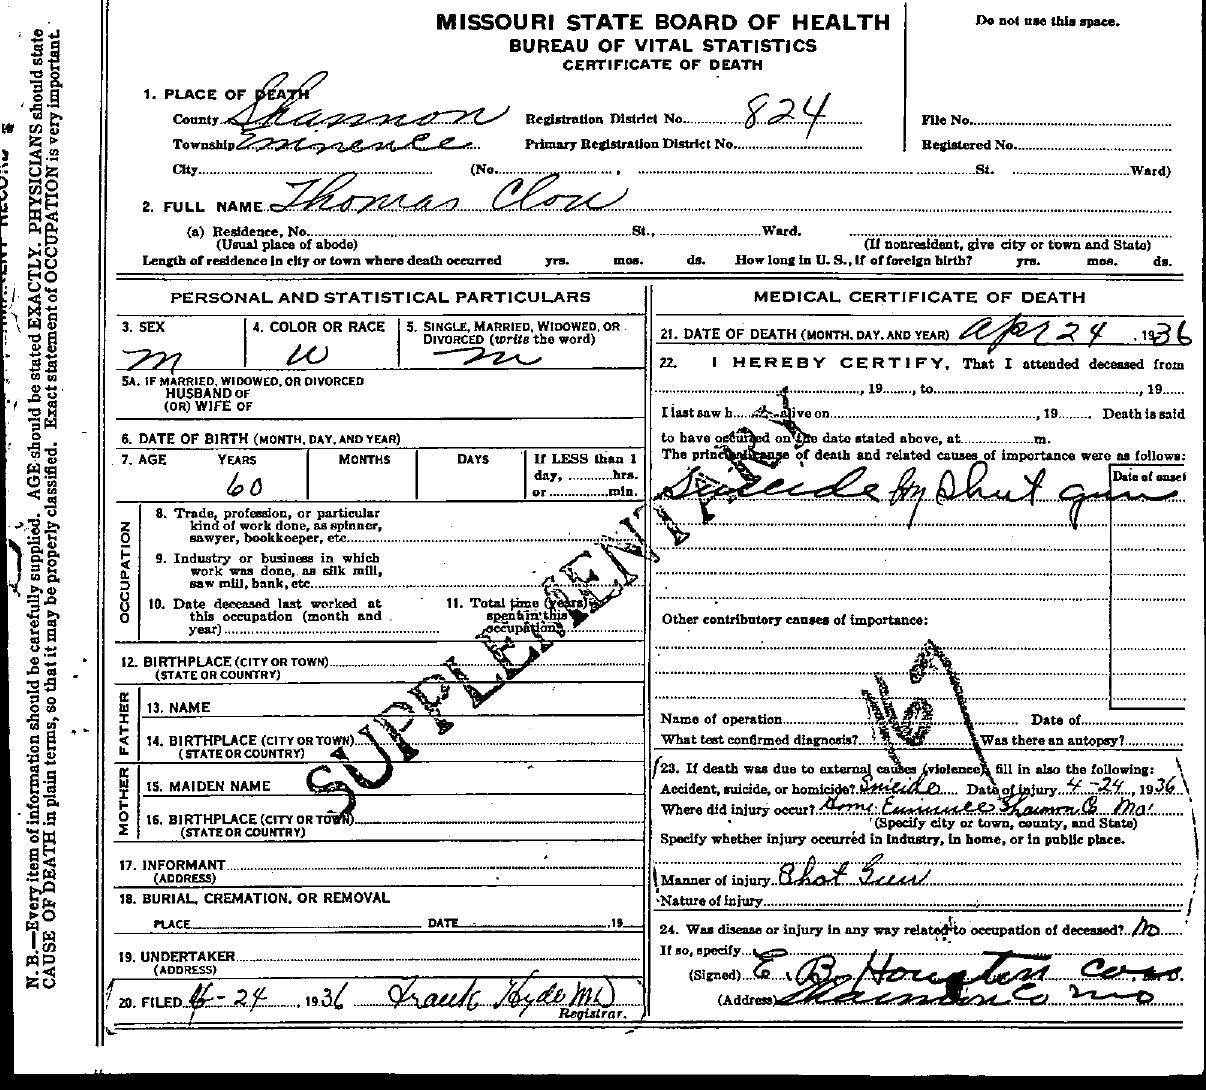 MISSOURI STATE BOARD OF HEALTH
BUREAU OF VITAL STATISTICS
CERTIFICATE OF DEATH
Do not use this space.
1. PLACE OF DEATH
County Shannon Registration District No. 824 File No.
Township Eminence Primary Registration District No. Registered No.
City (No. , St. Ward)
2. FULL NAME Thomas
(a) Residence, No. St., Ward.
(Usual place of abode) (If nonresident, give city or town and State)
Length of residence in city or town where death occurred yrs. mos. ds. How long in U. S., if of foreign birth? yrs. mos. ds.
PERSONAL AND STATISTICAL PARTICULARS
3. SEX 4. COLOR OR RACE 5. SINGLE, MARRIED, WIDOWED, OR
DIVORCED (write the word)
M W M
5A. IF MARRIED, WIDOWED, OR DIVORCED
HUSBAND OF
(OR) WIFE OF
6. DATE OF BIRTH (MONTH, DAY, AND YEAR)
7. AGE YEARS MONTHS DAYS If LESS than 1
day, hrs.
or min.
60
OCCUPATION
8. Trade, profession, or particular
kind of work done, as spinner,
sawyer, bookkeeper, etc.
9. Industry or business in which
work was done, as silk mill,
saw mill, bank, etc.
10. Date deceased last worked at
this occupation (month and
year)
11. Total time (years)
spent in this
occupation
12. BIRTHPLACE (CITY OR TOWN)
(STATE OR COUNTRY)
FATHER
13. NAME
14. BIRTHPLACE (CITY OR TOWN)
(STATE OR COUNTRY)
MOTHER
15. MAIDEN NAME
16. BIRTHPLACE (CITY OR TOWN)
(STATE OR COUNTRY)
17. INFORMANT
(ADDRESS)
18. BURIAL, CREMATION, OR REMOVAL
PLACE DATE 19
19. UNDERTAKER
(ADDRESS)
20. FILED 4-24, 1936 Frank Hyde MD
Registrar.
MEDICAL CERTIFICATE OF DEATH
21. DATE OF DEATH (MONTH, DAY, AND YEAR) Apr 24, 1936
22. I HEREBY CERTIFY, That I attended deceased from
, 19 , to , 19
I last saw h alive on , 19 Death is said
to have occurred on the date stated above, at m.
The principal cause of death and related causes of importance were as follows:
Date of onset
Suicide by Shot gun
Other contributory causes of importance:
167
Name of operation Date of
What test confirmed diagnosis? Was there an autopsy?
23. If death was due to external causes (violence), fill in also the following:
Accident, suicide, or homicide? Suicide Date of injury 4-24, 1936
Where did injury occur? Home Eminence Shannon Co Mo
(Specify city or town, county, and State)
Specify whether injury occurred in industry, in home, or in public place.
Manner of injury Shot Gun
Nature of injury
24. Was disease or injury in any way related to occupation of deceased? No
If so, specify
(Signed) E. B. Houston
(Address) Shannon Co Mo
SUPPLEMENTARY
N. B.—Every item of information should be carefully supplied. AGE should be stated EXACTLY. PHYSICIANS should state
CAUSE OF DEATH in plain terms, so that it may be properly classified. Exact statement of OCCUPATION is very important.